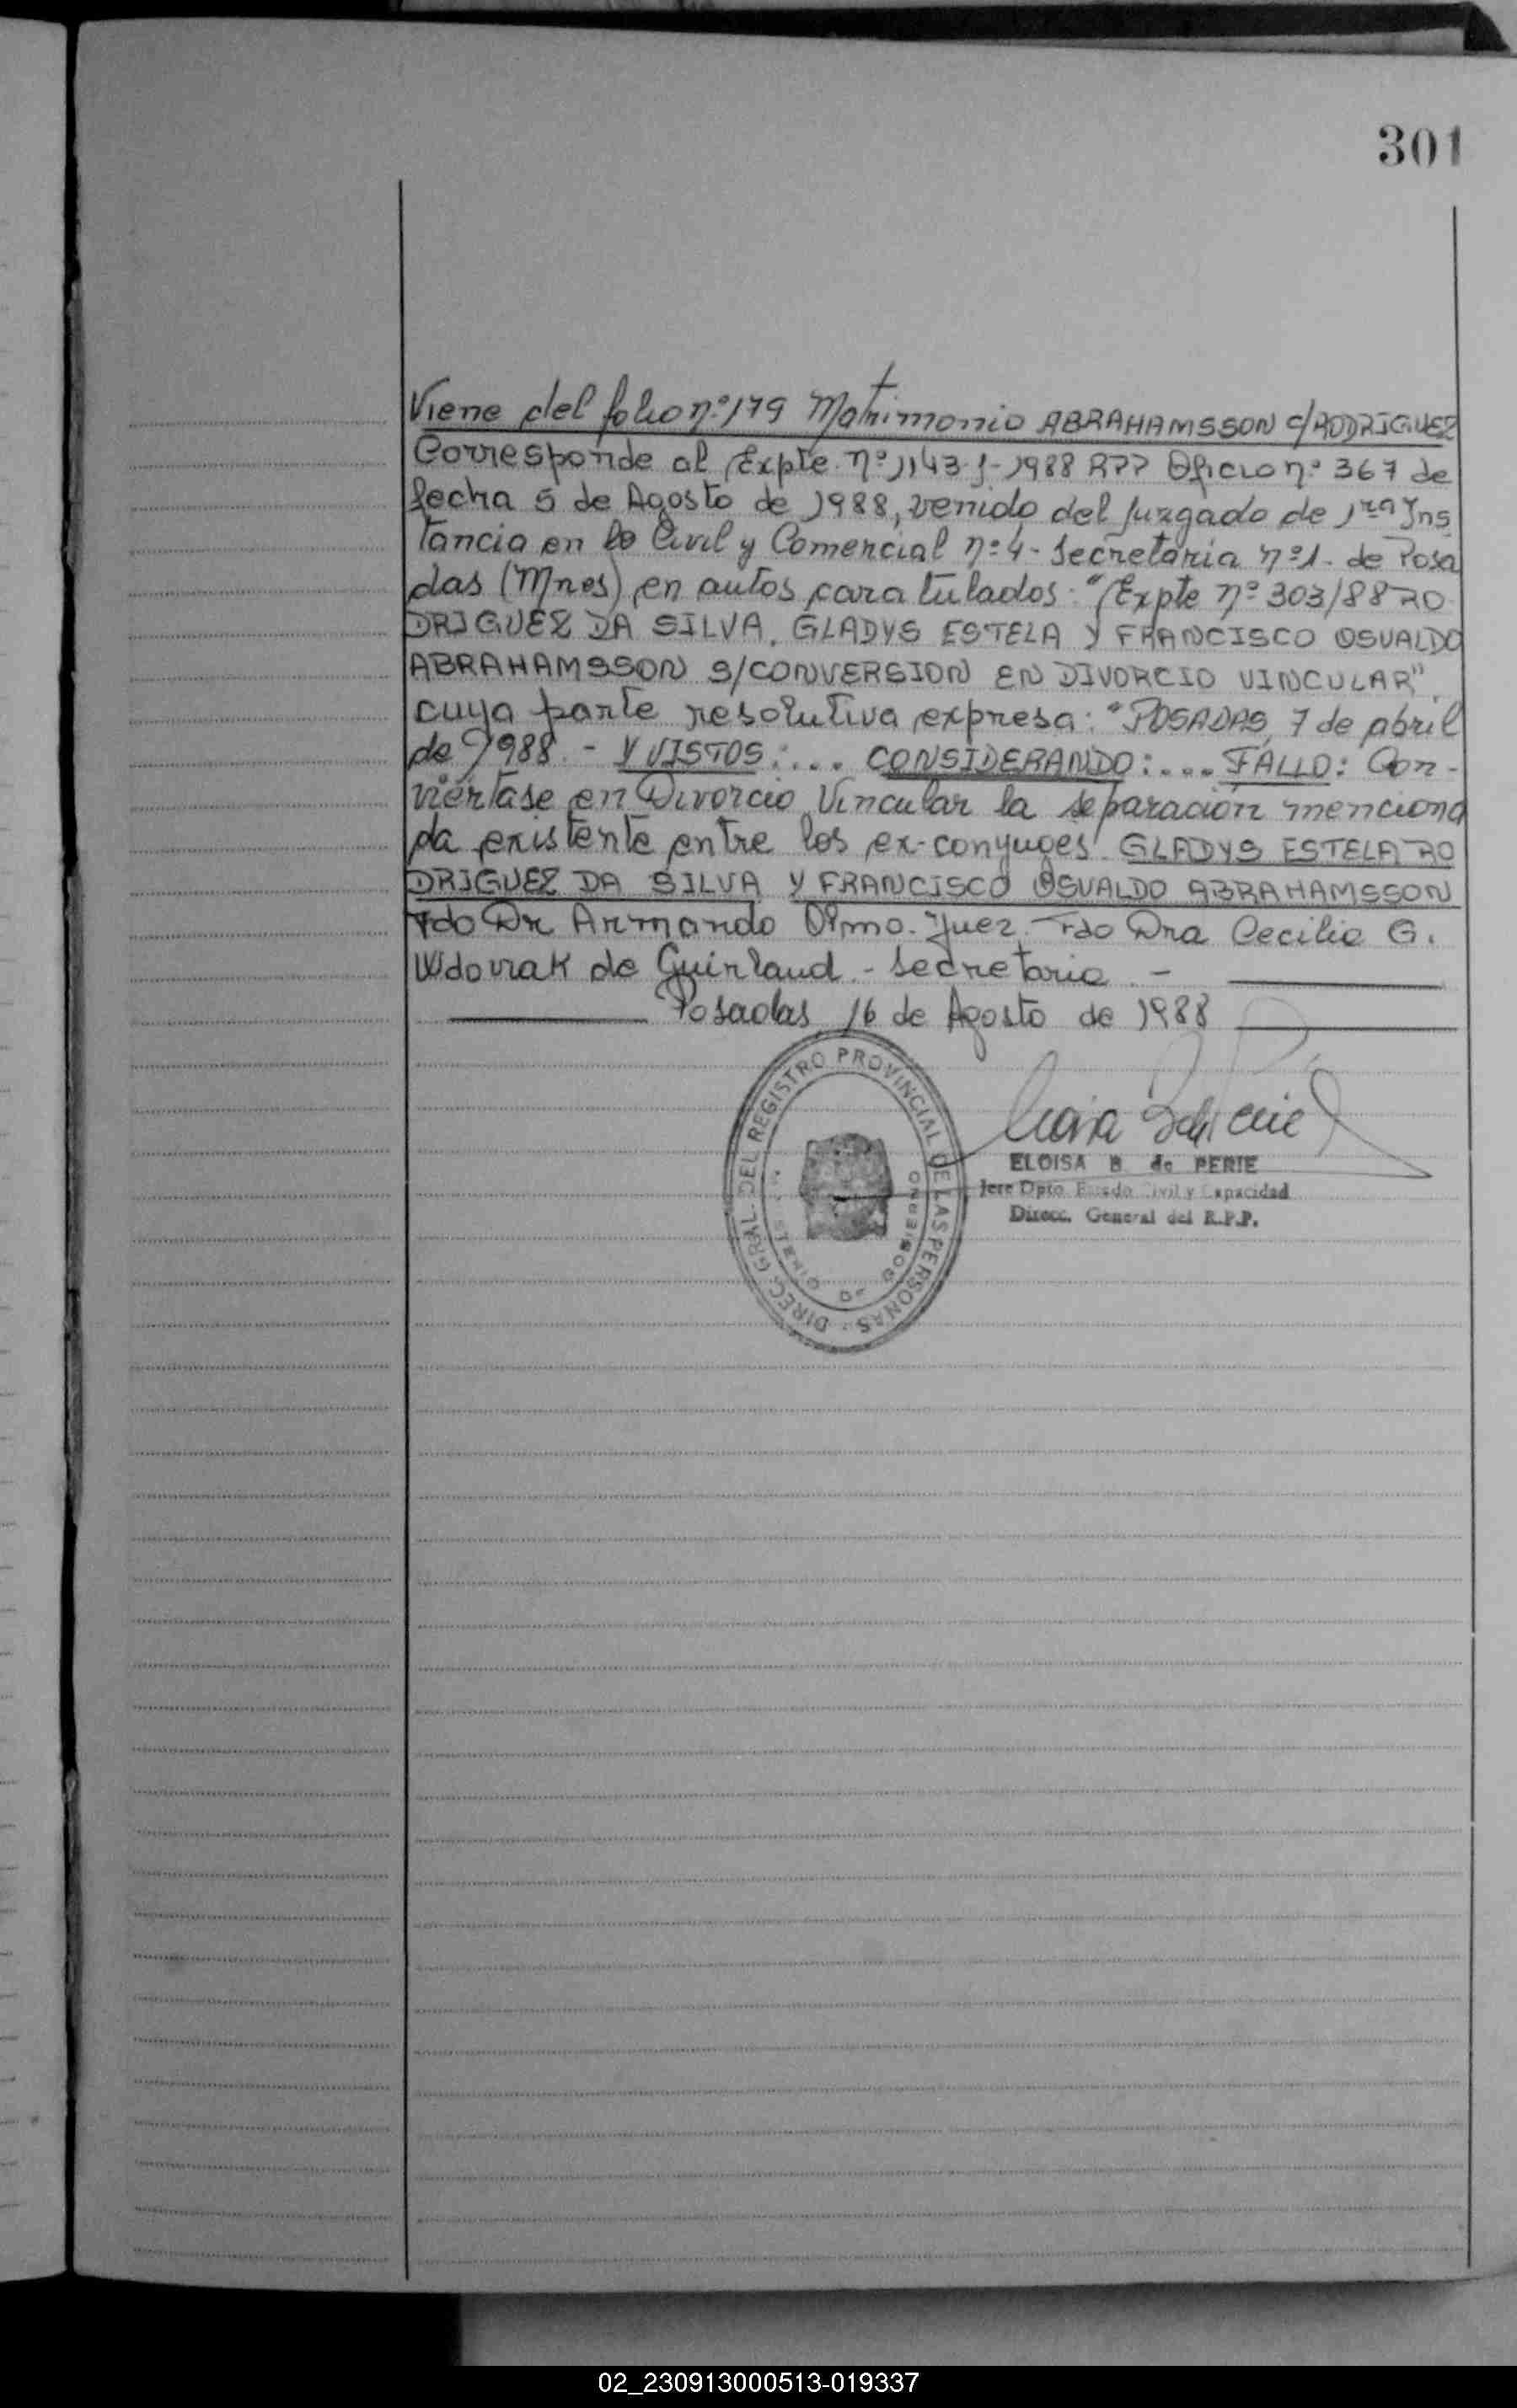 301
Viene del folio nº 179 Matrimonio ABRAHAMSSON c/RODRIGUEZ
Corresponde al Expte. nº 1143-J-1988 RPP Oficio nº 367 de
fecha 5 de Agosto de 1988, venido del Juzgado de 1ra Ins
tancia en lo Civil y Comercial nº 4 - Secretaria nº 1. de Posa
das (Mnes) en autos caratulados: "Expte nº 303/88 RO
DRIGUEZ DA SILVA, GLADYS ESTELA Y FRANCISCO OSVALDO
ABRAHAMSSON S/CONVERSION EN DIVORCIO VINCULAR",
cuya parte resolutiva expresa: "POSADAS, 7 de abril
de 1988. - Y VISTOS:.... CONSIDERANDO:.... FALLO: Con-
viértase en Divorcio Vincular la separación menciona
da existente entre los ex-conyuges GLADYS ESTELA RO
DRIGUEZ DA SILVA Y FRANCISCO OSVALDO ABRAHAMSSON
Fdo Dr Armando Olmo. Juez. Fdo Dra Cecilia G.
Wdoviak de Guirland. - Secretaria -
Posadas, 16 de Agosto de 1988
DIREC. GRAL. DEL REGISTRO PROVINCIAL DE LAS PERSONAS
ELOISA B. de PERIE
Jefe Dpto. Estado Civil y Capacidad
Direcc. General del R.P.P.
02_230913000513-019337